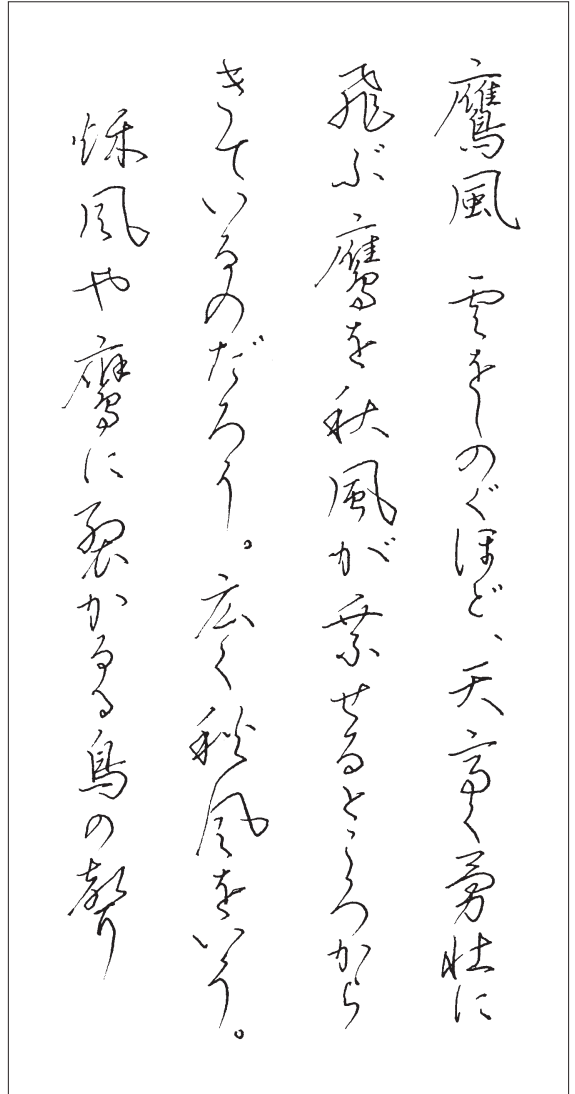 鷹風　雲をしのぐほど、天高く勇壮に
飛ぶ鷹を秋風が乗せるところから
きているのだろう。広く秋風をいう。
秌風や鷹に裂かるる鳥の聲